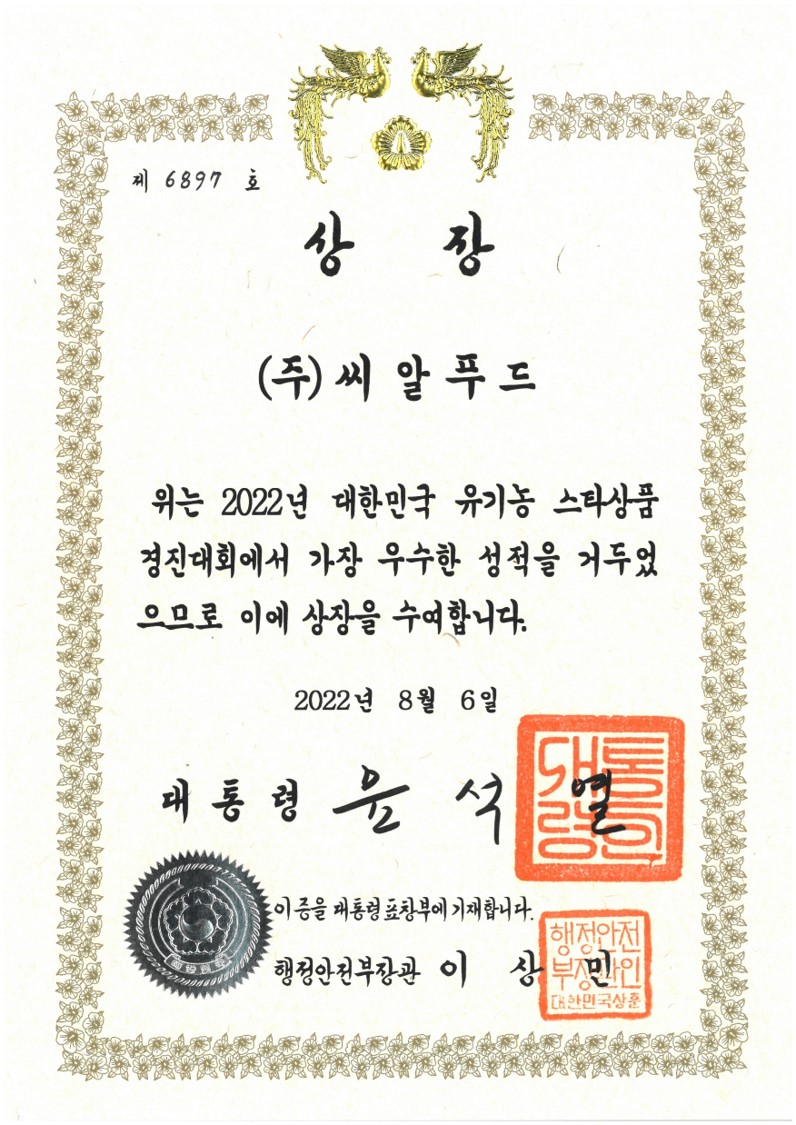 제 6897 호
상 장
(주)씨알푸드
위는 2022년 대한민국 유기농 스타상품
경진대회에서 가장 우수한 성적을 거두었
으므로 이에 상장을 수여합니다.
2022년 8월 6일
대통령 윤석열
대통령의인
이 증을 대통령표창부에 기재합니다.
행정안전부장관 이상민
행정안전
부장관인
대한민국상훈